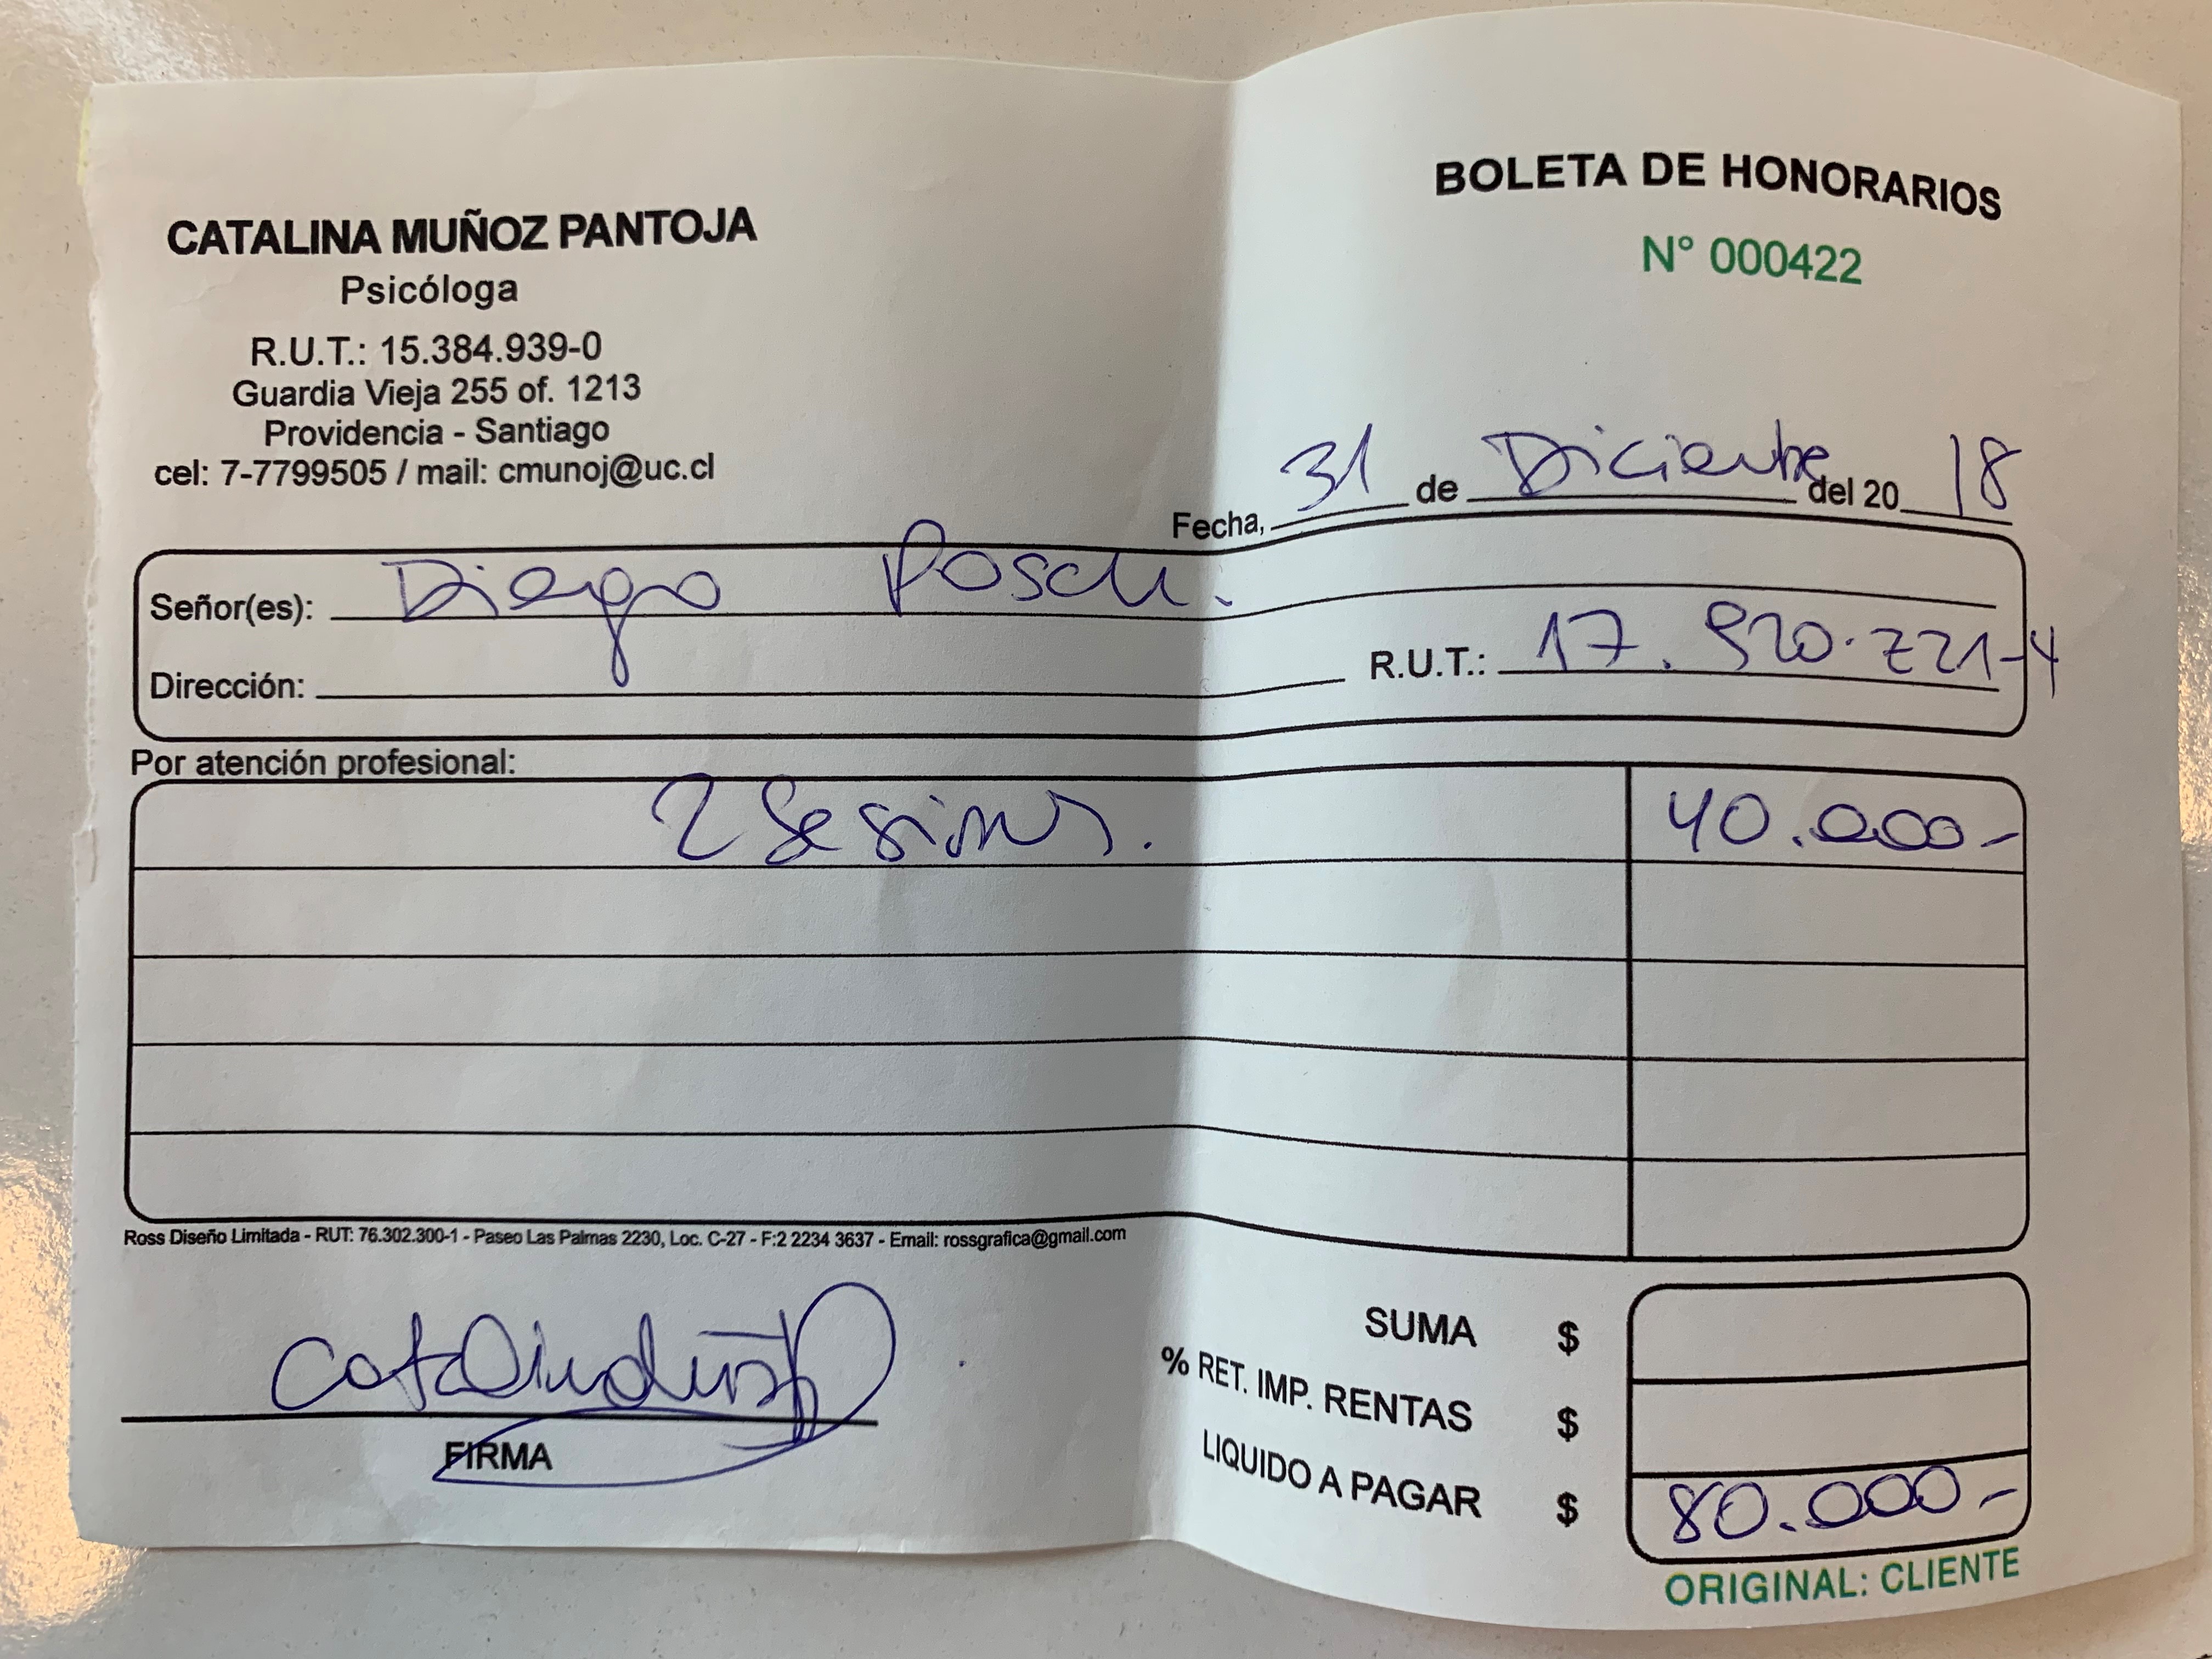 CATALINA MUÑOZ PANTOJA
Psicóloga
R.U.T.: 15.384.939-0
Guardia Vieja 255 of. 1213
Providencia - Santiago
cel: 7-7799505 / mail: cmunoj@uc.cl
BOLETA DE HONORARIOS
N° 000422
Fecha, 31 de Diciembre del 20 18
Señor(es): Diego Posch.
Dirección:
R.U.T.: 17.920.721-4
Por atención profesional:
2 Sesiones. 40.000-
Ross Diseño Limitada - RUT: 76.302.300-1 - Paseo Las Palmas 2230, Loc. C-27 - F:2 2234 3637 - Email: rossgrafica@gmail.com
FIRMA
SUMA $
% RET. IMP. RENTAS $
LIQUIDO A PAGAR $ 80.000-
ORIGINAL: CLIENTE